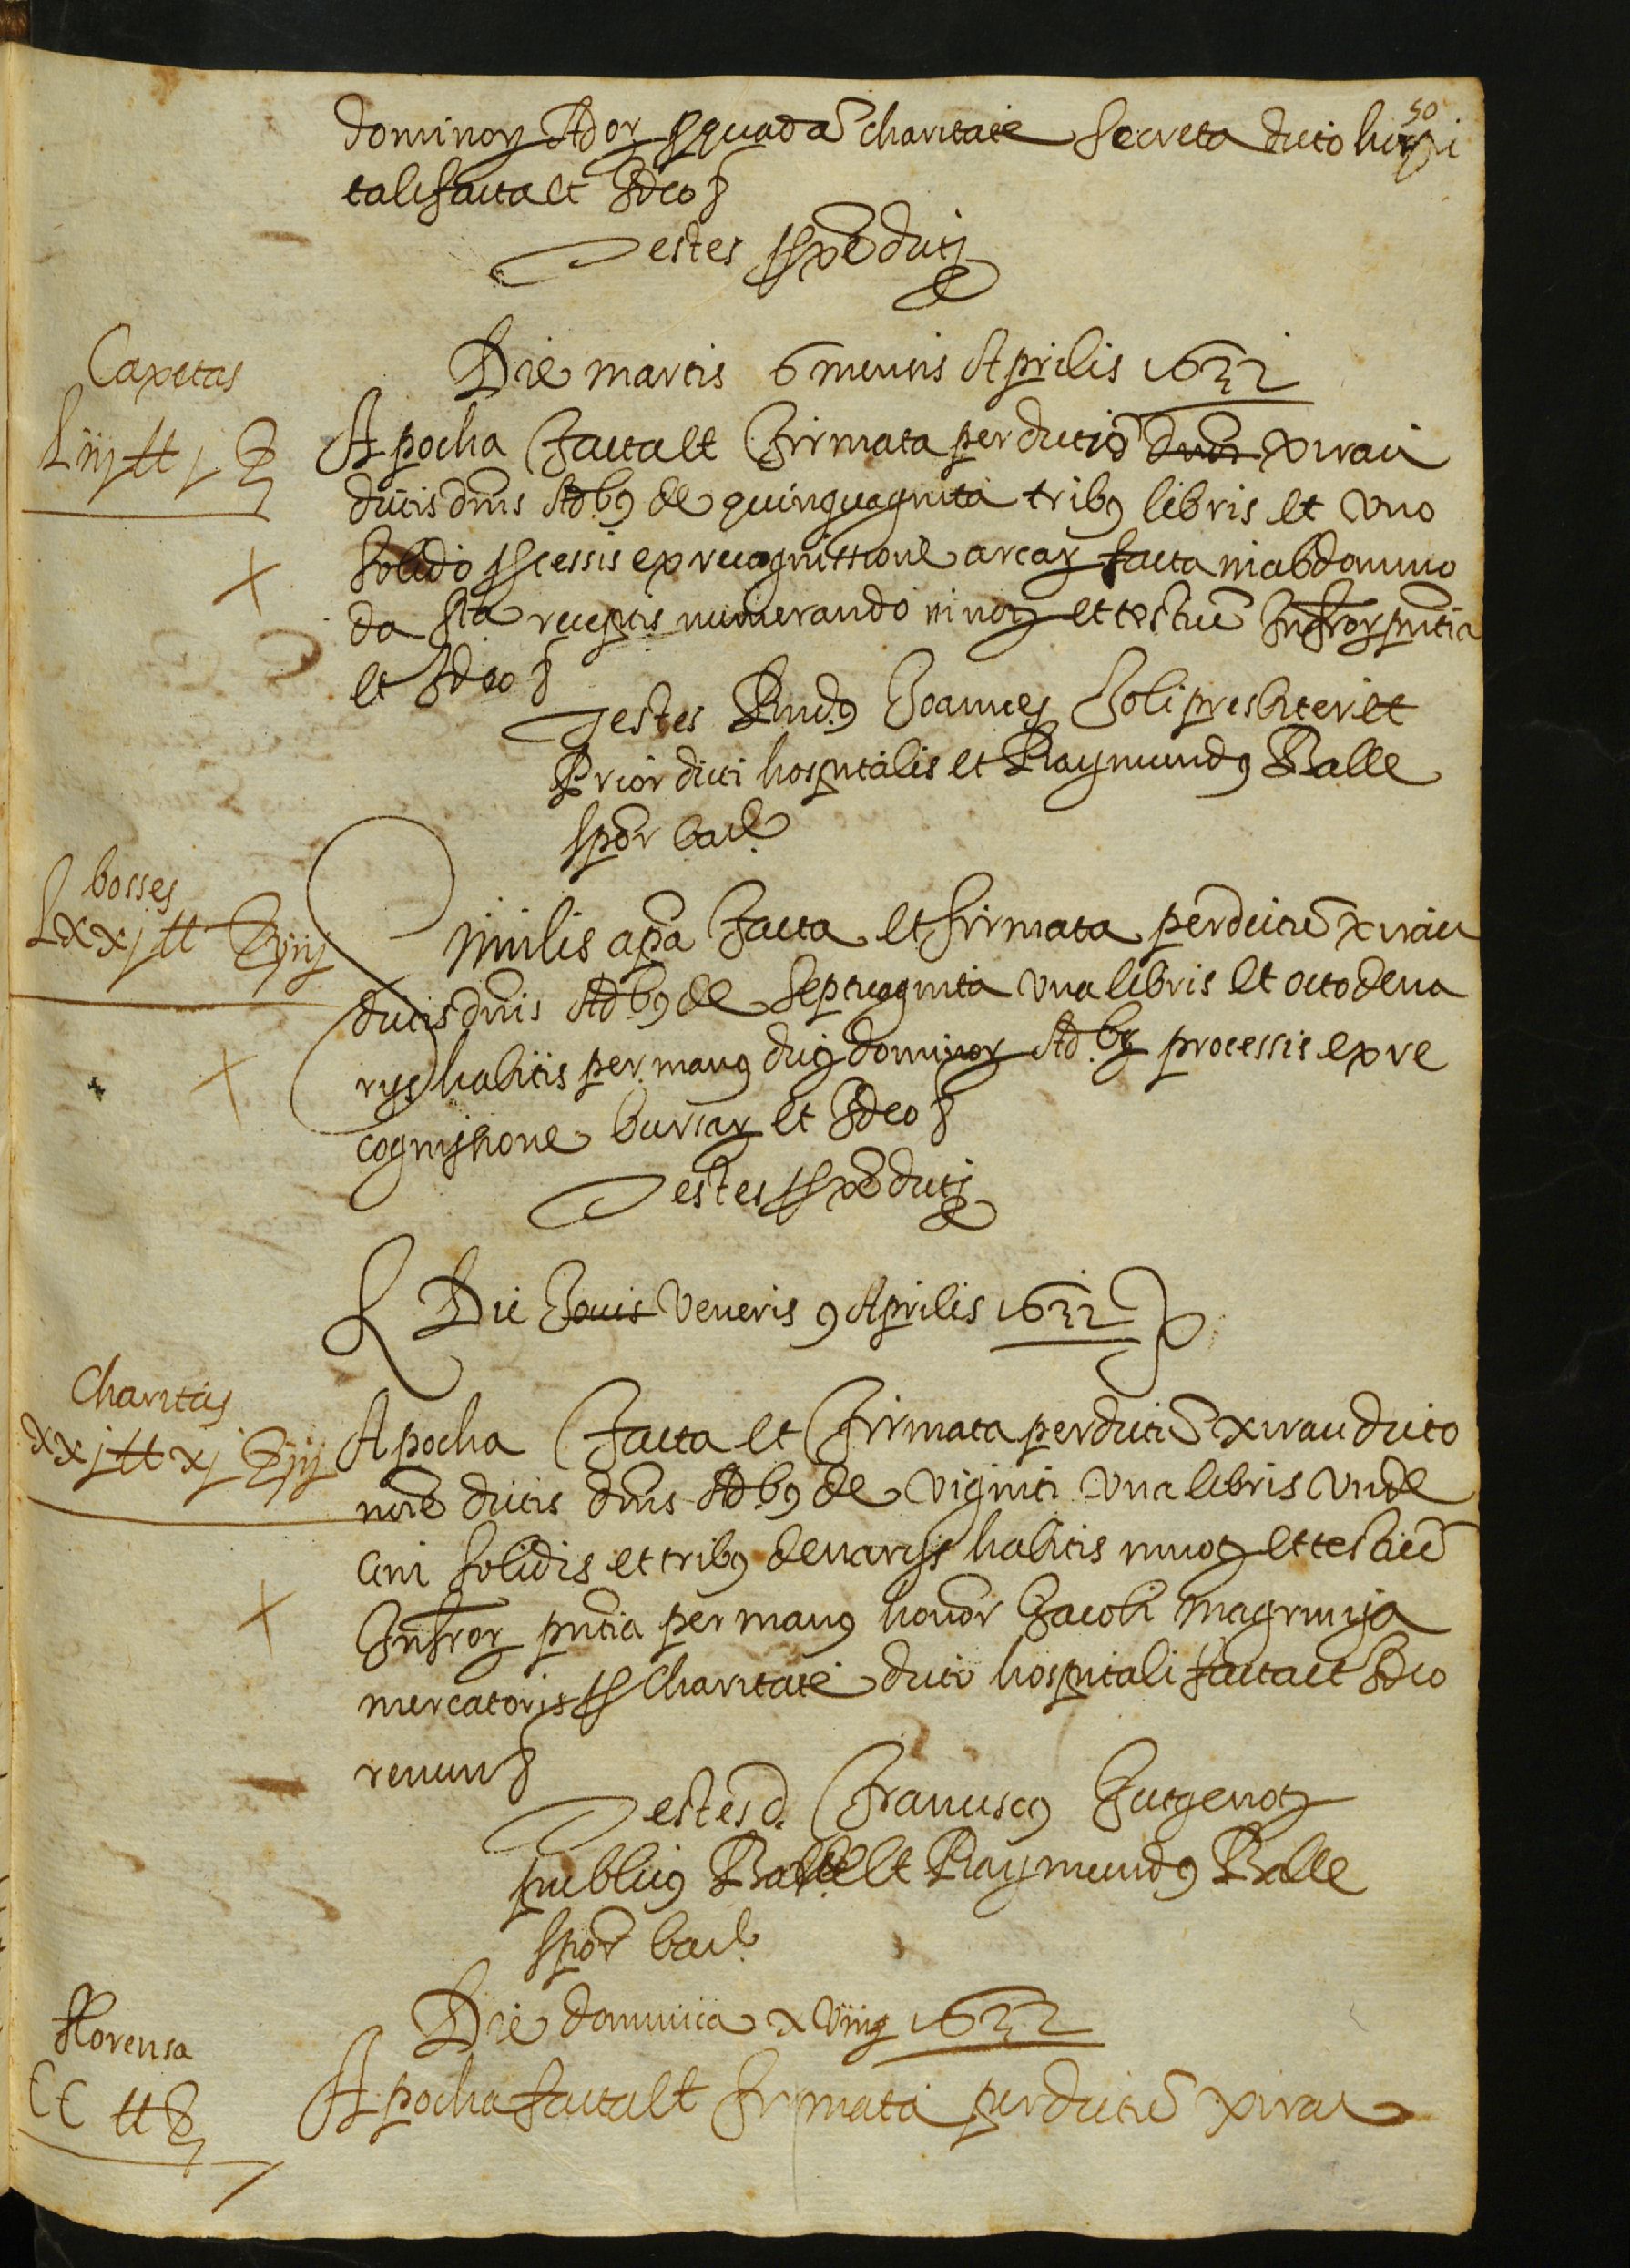 50
dominor Ador p quada charitate secreta dicto hospi
tali facta et Ideo
Testes pre dicti
Die martis 6 mensis Aprilis 1632
Caxetas
Liij ℔ j ß
Apocha facta et firmata per dictū Xirau
dictis dnis Adbꝰ de quinquaginta tribꝰ libris et uno
solido pcessis ex recognitione arcar facta in ab domino
da receptis numerando in noꝫ et testiū Infror pntia
et Ideo
Testes Rndꝰ Joannes Soli presbiter et
Prior dicti hospitalis et Raymundꝰ Balle
spor
bosses
Lxxj ℔ ß viij
Similis apa facta et firmata per dictū Xirau
dictis dnis Adbꝰ de septuaginta una libris et octo dena
rijs habitis per manꝰ dictor dominor Ad bꝫ processis ex re
cognitione bursar et Ideo
Testes pre dicti
Die Jovis Veneris 9 Aprilis 1632
Charitas
xxj ℔ xj ß iij
Apocha facta et firmata per dictū Xirau dicto
noīe dictis dnis Adbꝰ de viginti una libris unde
cim solidis et tribꝰ denarijs habitis in noꝫ et testiū
Infror pntia per manꝰ honor Jacobi Magrinya
mercatoris p Charitate dicto hospitali facta et Ideo
renun
Testes d. Franciscꝰ
publicꝰ et Raymundꝰ Balle
spor
Die dominica xviiij 1632
florensa
CC ℔ ß
Apocha facta et firmata per dictū Xirau